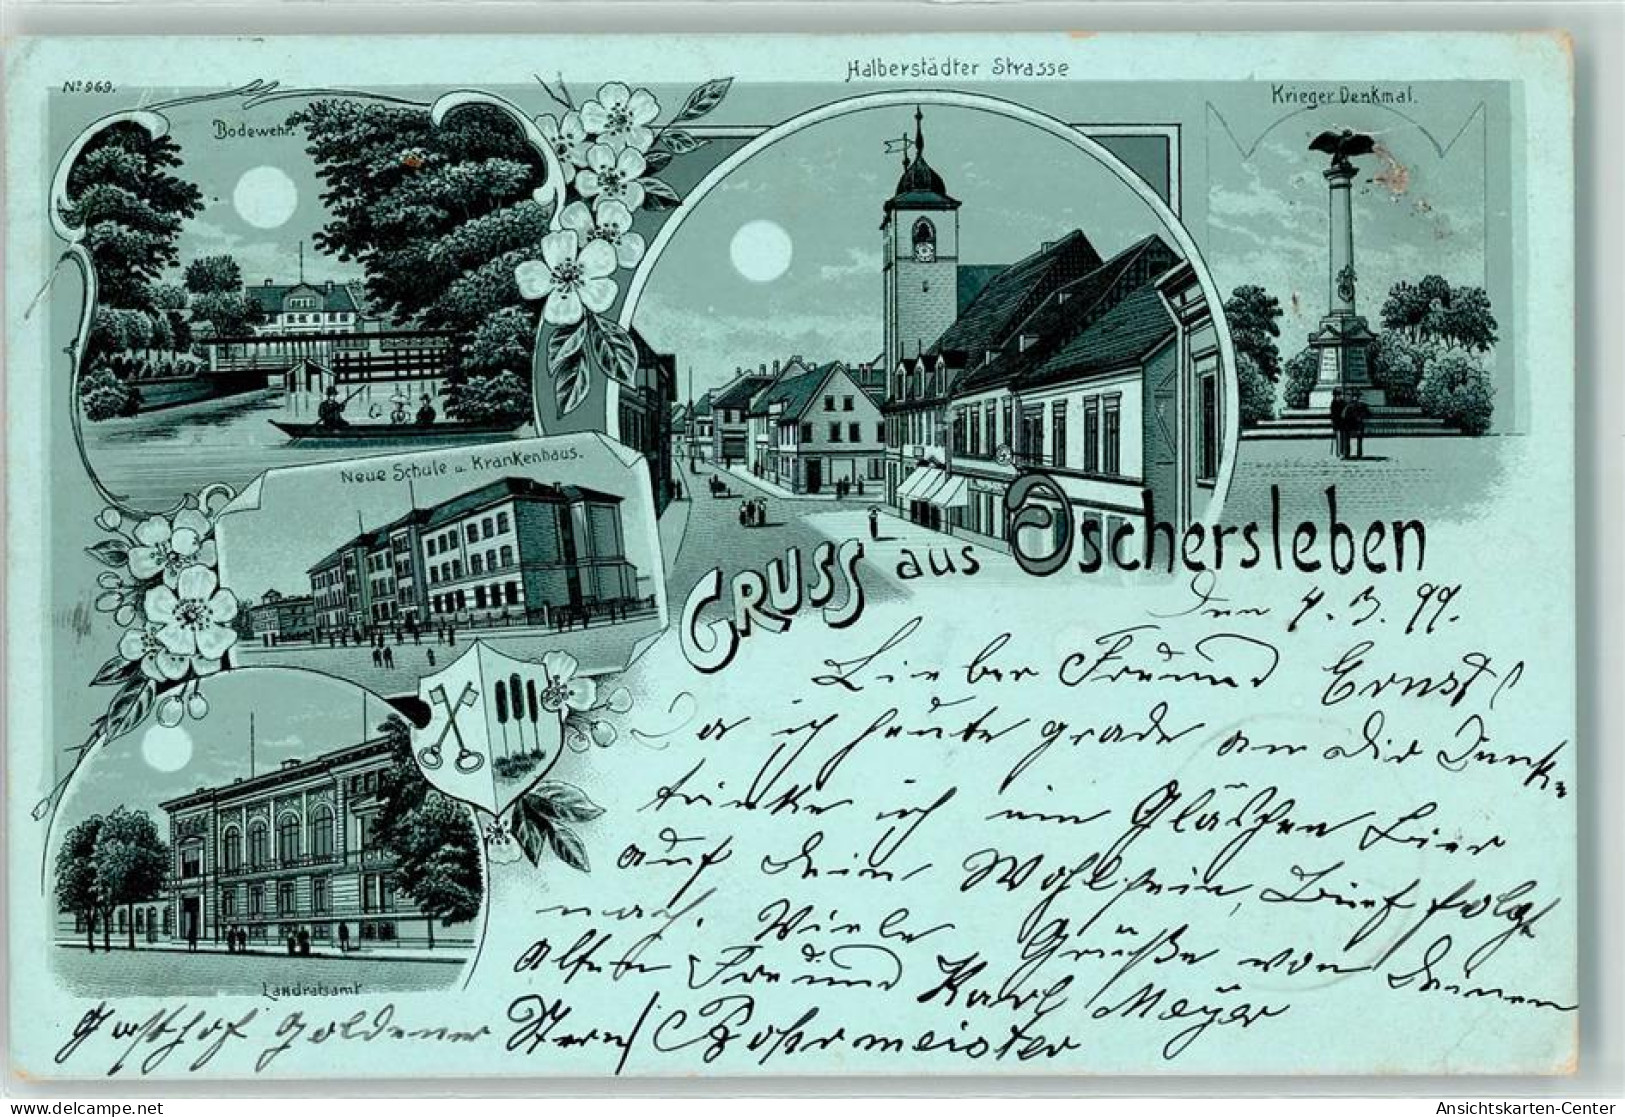 No 969.
Bodewehr.
Halberstädter Strasse
Krieger Denkmal.
Neue Schule u. Krankenhaus.
Landratsamt
GRUSS aus Oschersleben
Den 4. 3. 99.
Lieber Freund Ernst!
Da ich heute grade an dir denke
trinke ich ein Gläschen Bier
auf dein Wohlsein, Brief folgt
nach. Viele Grüße von deinen
alten Freund Karl Meyer
Gasthof Goldener Stern Rohrmeister
Ansichtskarten-Center